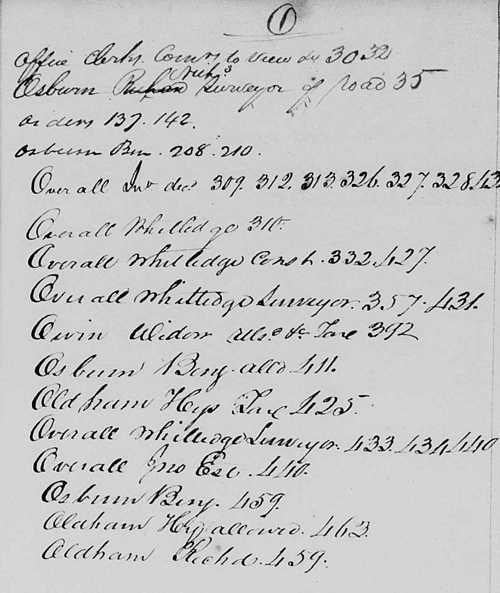 O
Office Clerks. Comrs to view &c 30 32
Osburn Nichs Surveyor of road 35
orders 137. 142.
Osburn Ben. 208. 210.
Overall Jno decd 309. 312. 313. 326. 327. 328.
Overall Whitledge 310.
Overall Whitledge Const. 332. 427.
Overall Whitledge Surveyor. 357. 431.
Owin Widow &c 392
Osburn Benj. alld 411.
Oldham Hys 425.
Overall Whitledge Surveyor. 433. 434. 440
Overall Jno Est. 440.
Osburn Benj. 459.
Oldham Hy allowed. 463.
Oldham Richd. 459.